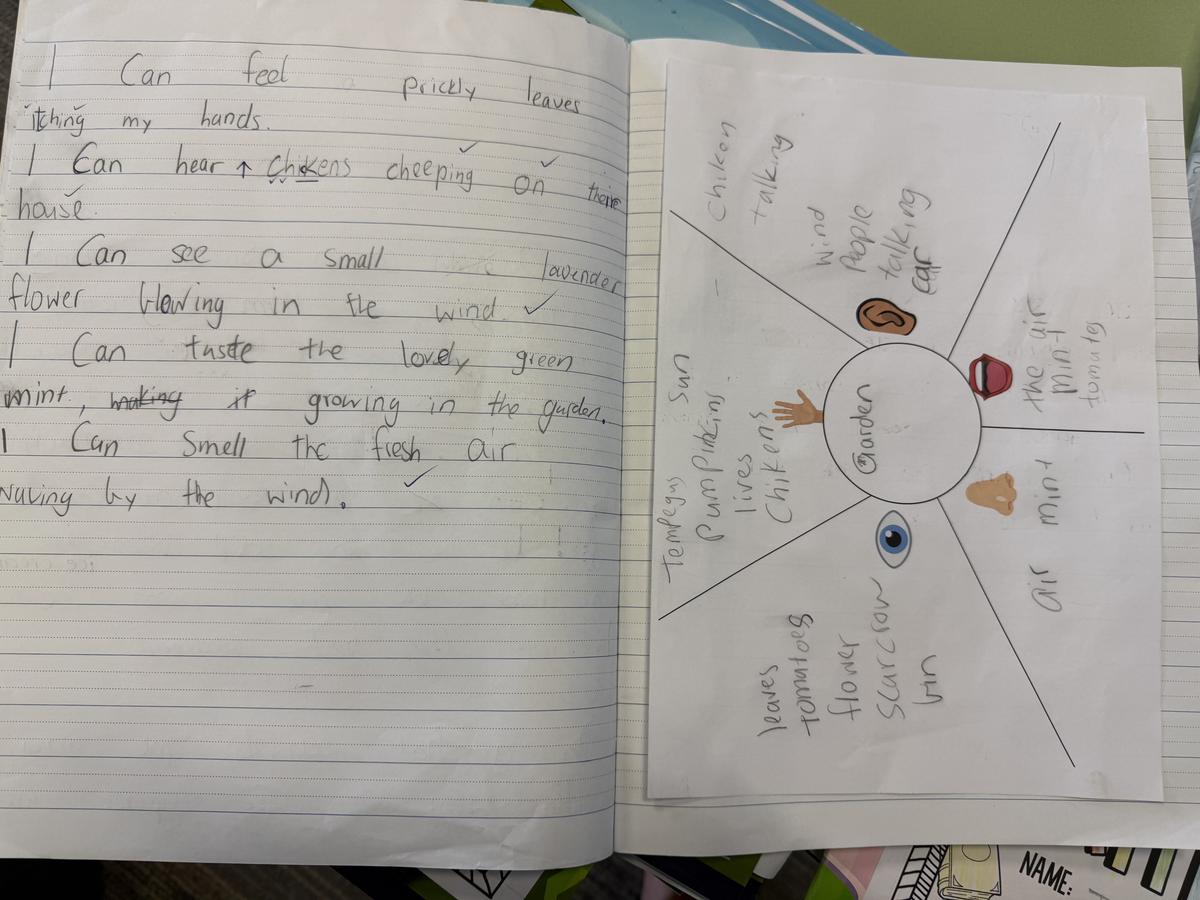 I Can feel prickly leaves
itching my hands.
I Can hear ↑ chikens cheeping on their
house.
I Can see a small lavender
flower blowing in the wind
I Can taste the lovely green
mint, making it growing in the garden.
I Can Smell the fresh air
waving by the wind.
Chiken
talking
wind
People
talking
car
the air
mint
tomates
Garden
Sun
Pumpkins
lives
Chikens
air mint
leaves
tomatoes
flower
Scarcrow
bin
NAME: